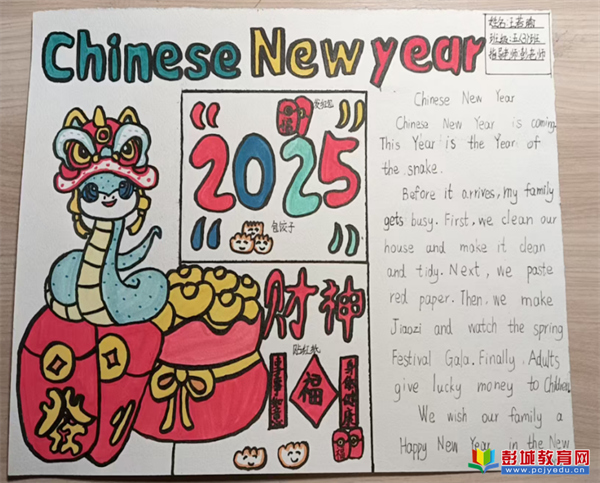 Chinese New year
班级:五(3)班
2025
发红包
包饺子
财神
贴红纸
福
身体健康
發
Chinese New Year
Chinese New Year is coming.
This Year is the Year of
the snake.
Before it arrives, my family
gets busy. First, we clean our
house and make it clean
and tidy. Next, we paste
red paper. Then, we make
Jiaozi and watch the spring
Festival Gala. Finally. Adults
give lucky money to Children.
We wish our family a
Happy New Year in the New
彭城教育网
www.pcjyedu.cn